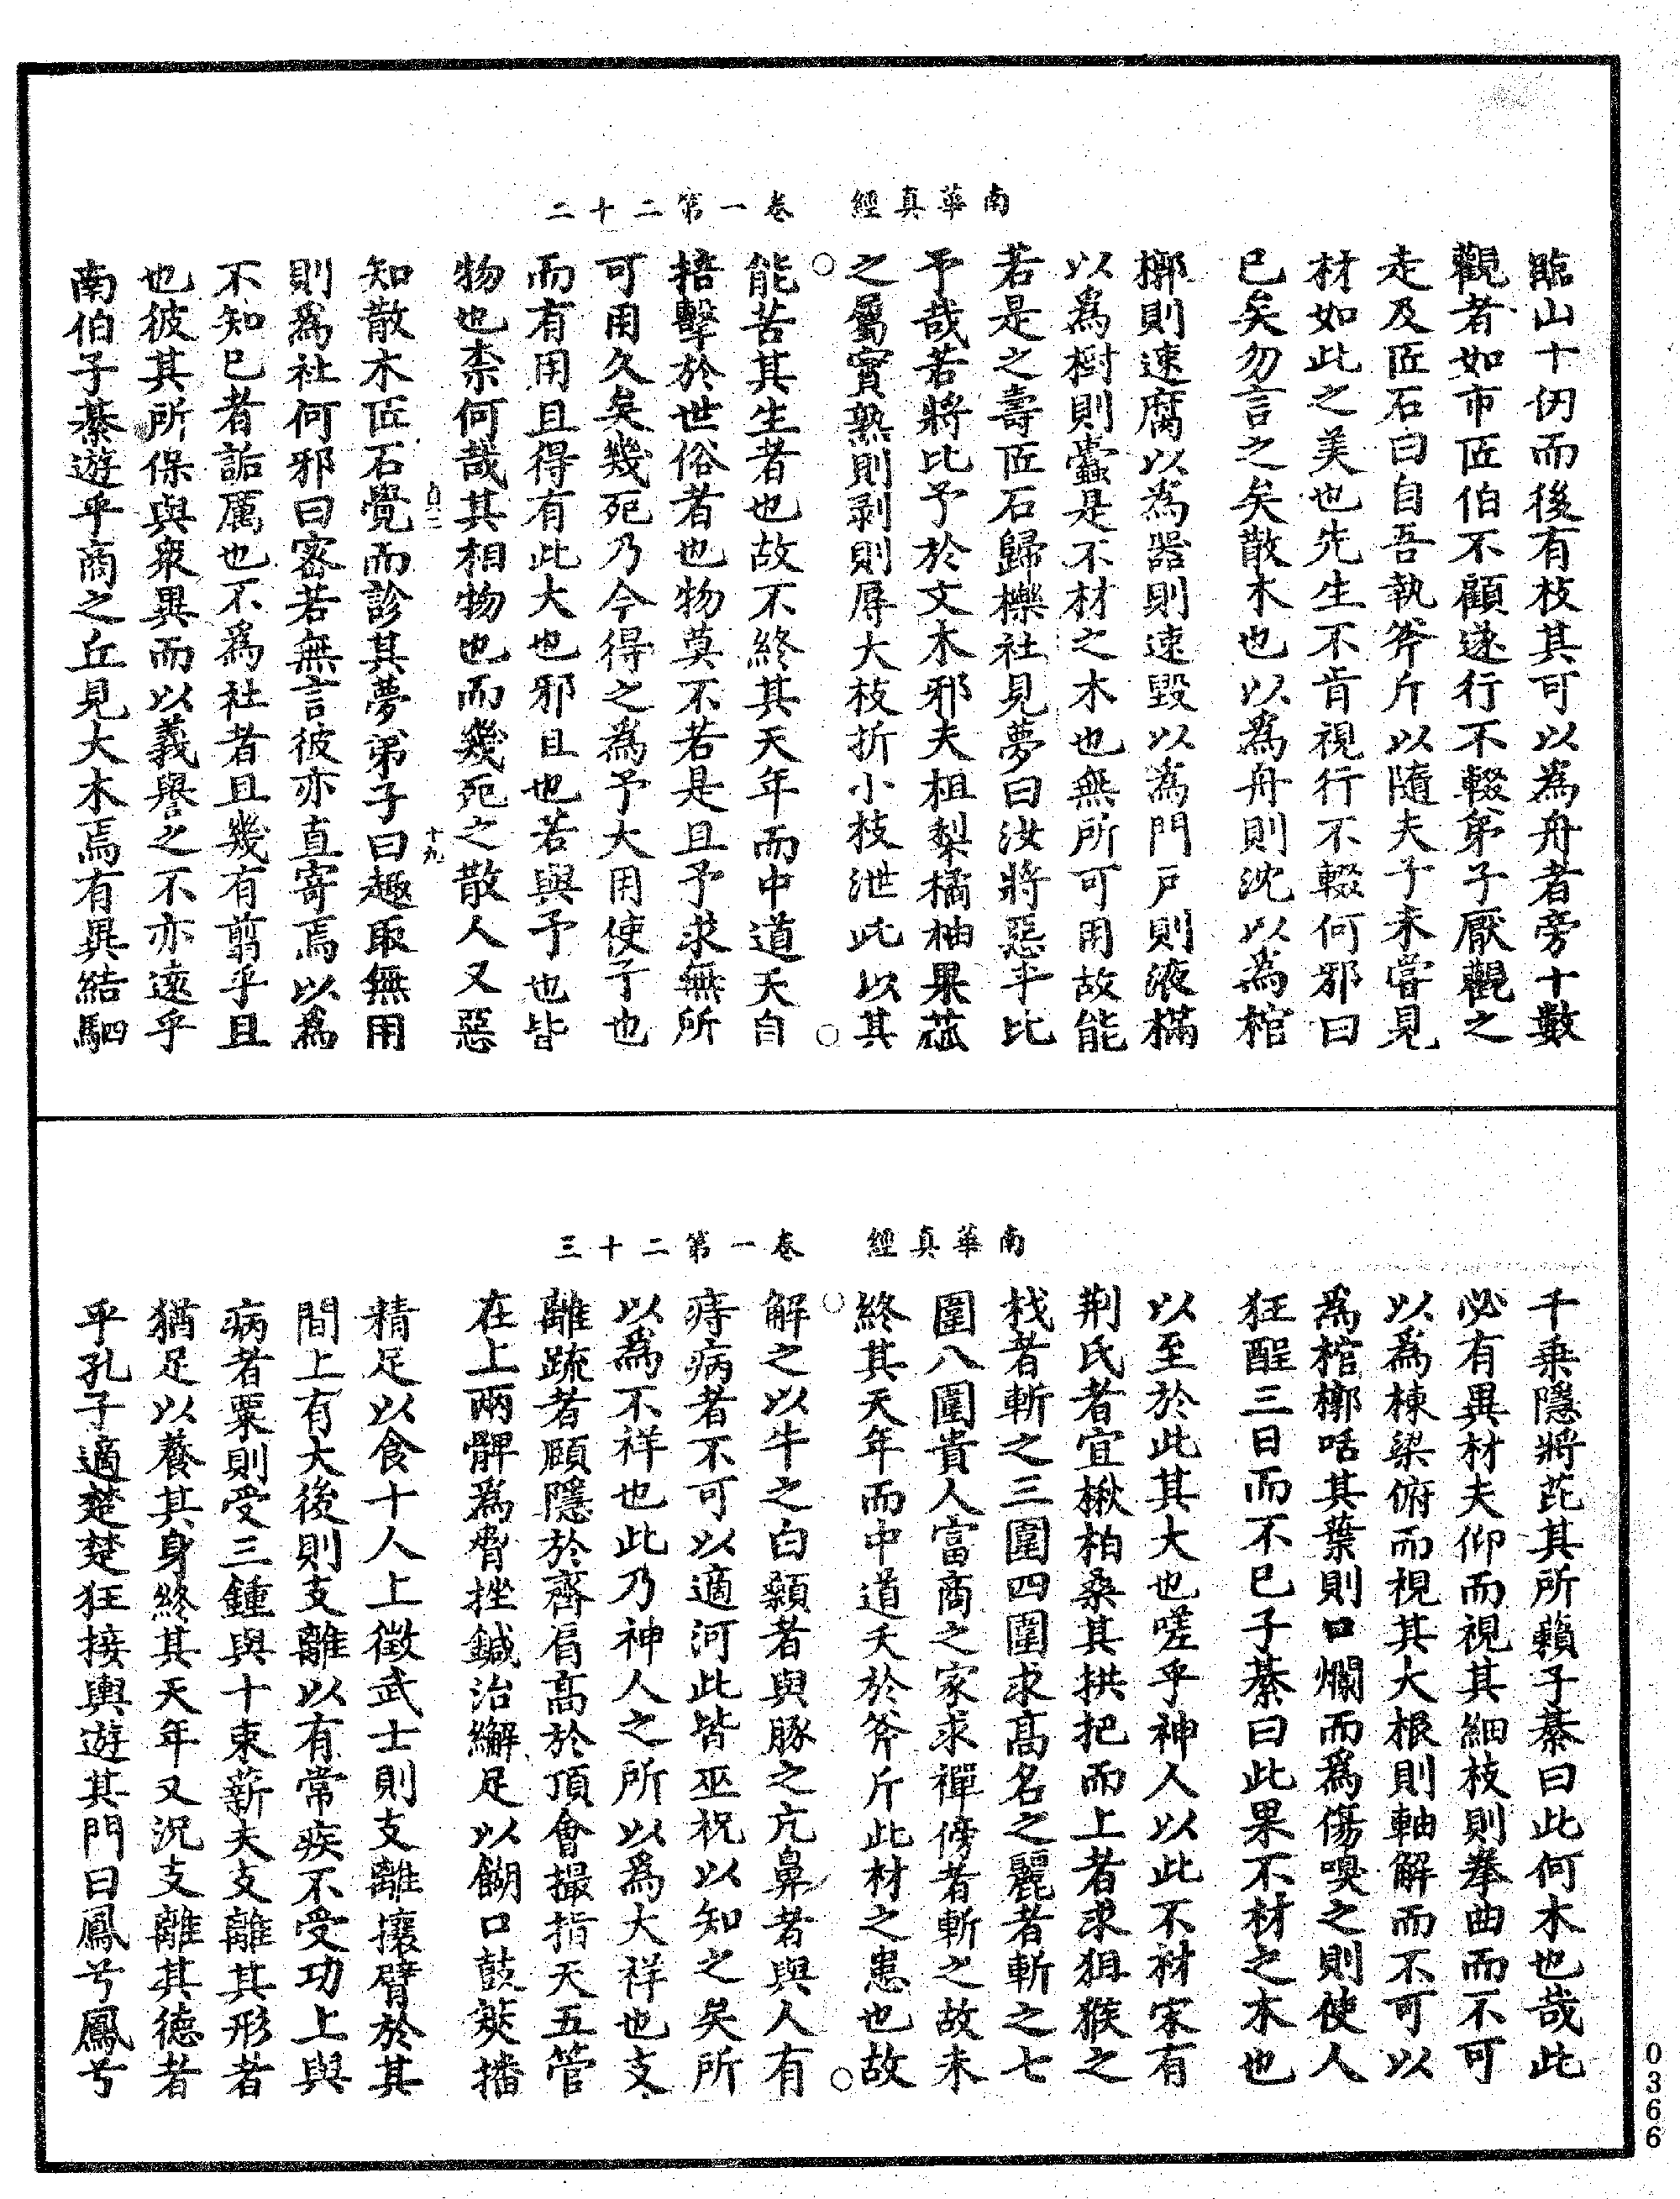 南華真經　卷一第二十二
臨山十仞而後有枝其可以為舟者旁十數
觀者如市匠伯不顧遂行不輟弟子厭觀之
走及匠石曰自吾執斧斤以隨夫子未嘗見
材如此之美也先生不肯視行不輟何邪曰
已矣勿言之矣散木也以為舟則沈以為棺
槨則速腐以為器則速毀以為門戶則液樠
以為樹則蠹是不材之木也無所可用故能
若是之壽匠石歸櫟社見夢曰汝將惡乎比
予哉若將比予於文木邪夫柤梨橘柚果蓏
之屬實熟則剥則辱大枝折小枝泄此以其
能苦其生者也故不終其天年而中道夭自
掊擊於世俗者也物莫不若是且予求無所
可用久矣幾死乃今得之為予大用使予也
而有用且得有此大也邪且也若與予也皆
物也柰何哉其相物也而幾死之散人又惡
知散木匠石覺而診其夢弟子曰趣取無用
十九
則為社何邪曰密若無言彼亦直寄焉以為
不知已者詬厲也不為社者且幾有翦乎且
也彼其所保與衆異而以義譽之不亦遠乎
南伯子綦遊乎商之丘見大木焉有異結駟
南華真經　卷一第二十三
千乗隱將芘其所藾子綦曰此何木也哉此
必有異材夫仰而視其細枝則拳曲而不可
以為棟梁俯而視其大根則軸解而不可以
為棺槨咶其葉則口爛而為傷嗅之則使人
狂酲三日而不已子綦曰此果不材之木也
以至於此其大也嗟乎神人以此不材宋有
荆氏者宜楸柏桑其拱把而上者求狙猴之
杙者斬之三圍四圍求高名之麗者斬之七
圍八圍貴人富商之家求禪傍者斬之故未
終其天年而中道夭於斧斤此材之患也故
解之以牛之白顙者與豚之亢鼻者與人有
痔病者不可以適河此皆巫祝以知之矣所
以為不祥也此乃神人之所以為大祥也支
離疏者頤隱於齊肩高於頂會撮指天五管
在上兩髀為脅挫鍼治繲足以餬口鼓筴播
精足以食十人上徵武士則支離攘臂於其
間上有大後則支離以有常疾不受功上與
病者粟則受三鍾與十束薪夫支離其形者
猶足以養其身終其天年又況支離其德者
乎孔子適楚楚狂接輿遊其門曰鳳兮鳳兮
0366